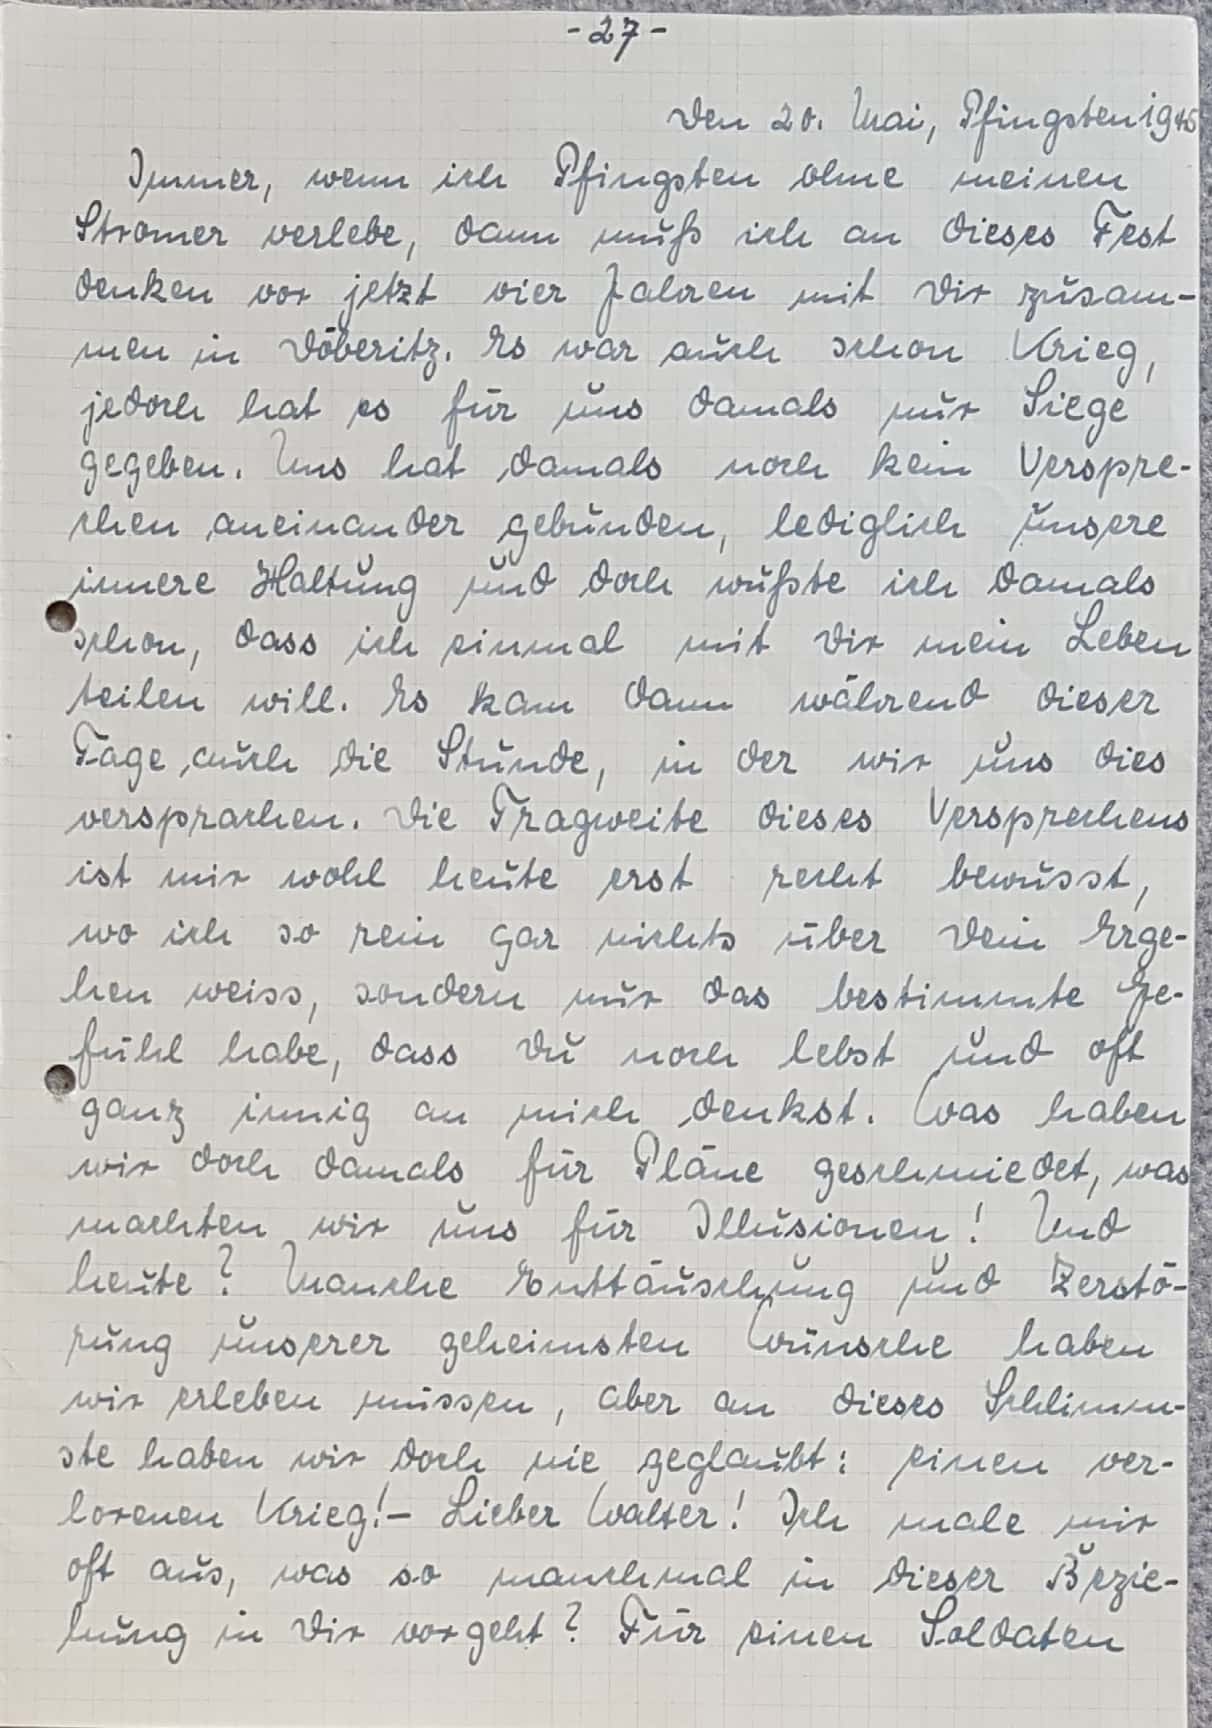 - 27 -
Den 20. Mai, Pfingsten 1945
Immer, wenn ich Pfingsten ohne meinen
Stromer verlebe, dann muß ich an dieses Fest
denken vor jetzt vier Jahren mit Dir zusam-
men in Döberitz. Es war auch schon Krieg,
jedoch hat es für uns damals nur Siege
gegeben. Uns hat damals noch kein Verspre-
chen aneinander gebunden, lediglich unsere
innere Haltung und doch wußte ich damals
schon, dass ich einmal mit Dir mein Leben
teilen will. Es kam dann während dieser
Tage auch die Stunde, in der wir uns dies
versprachen. Die Tragweite dieses Versprechens
ist mir wohl heute erst recht bewusst,
wo ich so rein gar nichts über Dein Erge-
hen weiss, sondern nur das bestimmte Ge-
fühl habe, dass Du noch lebst und oft
ganz innig an mich denkst. Was haben
wir doch damals für Pläne geschmiedet, was
machten wir uns für Illusionen! Und
heute? Manche Enttäuschung und Zerstö-
rung unserer geheimsten Wünsche haben
wir erleben müssen, aber an dieses Schlimm-
ste haben wir doch nie geglaubt: einen ver-
lorenen Krieg! - Lieber Walter! Ich male mir
oft aus, was so manchmal in dieser Bezie-
hung in Dir vorgeht? Für einen Soldaten